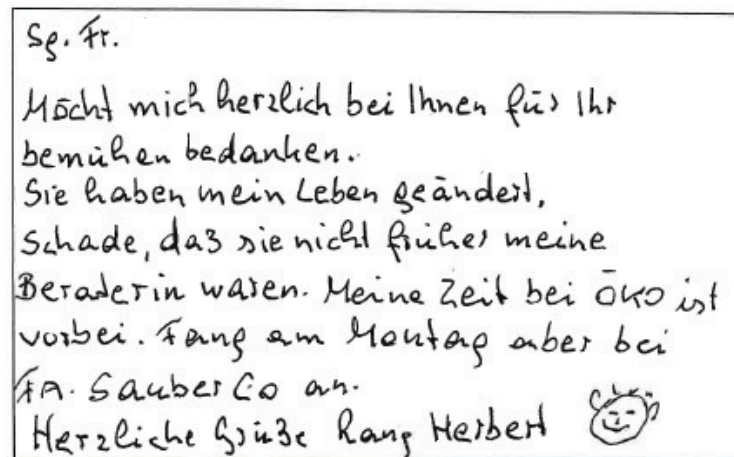 Sg. Fr.
Möcht mich herzlich bei Ihnen für Ihr
bemühen bedanken.
Sie haben mein Leben geändert,
Schade, daß sie nicht früher meine
Beraterin waren. Meine Zeit bei ÖKO ist
vorbei. Fang am Montag aber bei
FA. Sauber Co an.
Herzliche Grüße Rang Herbert